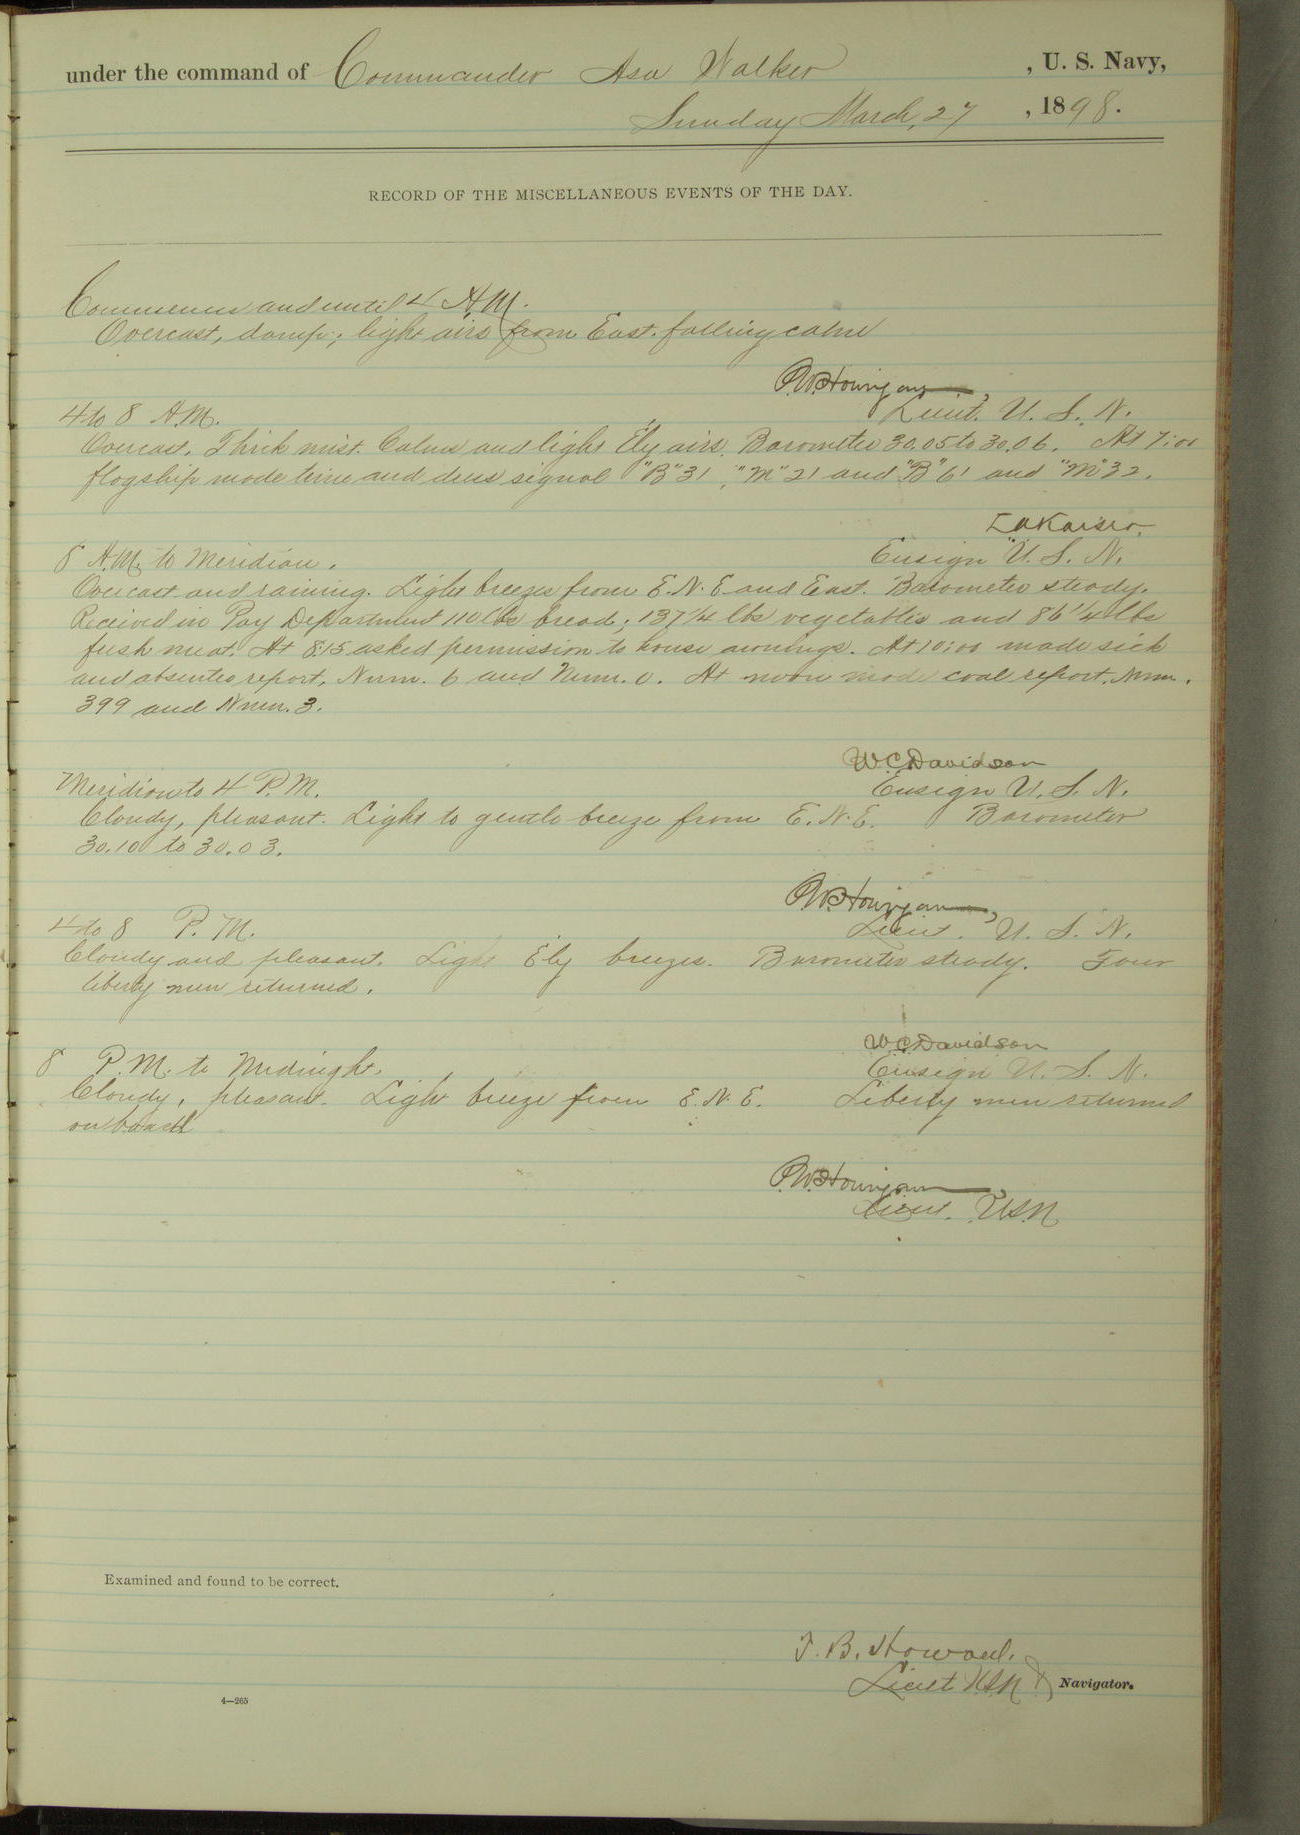 under the command of Commander Asa Walker, U. S. Navy,
Sunday March, 27, 1898.
RECORD OF THE MISCELLANEOUS EVENTS OF THE DAY.
Commences and until 4 A.M.
Overcast, damp; light airs from East. falling calm
P.W. Hourigan,
Lieut. U. S. N.
4 to 8 A.M.
Overcast. Thick mist. Calms and light E'ly airs. Barometer 30.05 to 30.06. At 7:01
flagship made time and dress signal "B" 31, "M" 21 and "B" 61 and "M" 32.
L A Kaiser.
Ensign U. S. N.
8 A.M. to Meridian.
Overcast and raining. Light breezes from E.N.E and East. Barometer steady.
Recieved in Pay Department 110 lbs bread; 137 1/4 lbs vegetables and 86 1/4 lbs
fresh meat. At 8:15 asked permission to house awnings. At 10:00 made sick
and absentee report, Num. 6 and Num. 0. At noon made coal report. Num.
399 and Num. 3.
W.C. Davidson
Ensign U. S. N.
Meridian to 4 P.M.
Cloudy, pleasant. Light to gentle breeze from E.N.E. Barometer
30.10 to 30.03.
P.W. Hourigan,
Lieut. U. S. N.
4 to 8 P. M.
Cloudy and pleasant. Light E'ly breezes. Barometer steady. Four
liberty men returned.
W.C. Davidson
Ensign U. S. N.
8 P.M. to Midnight.
Cloudy, pleasant. Light breeze from E.N.E. Liberty men returned
on board
P.W. Hourigan,
Lieut. USN
Examined and found to be correct.
T. B. Howard.
Lieut USN & Navigator.
4—265